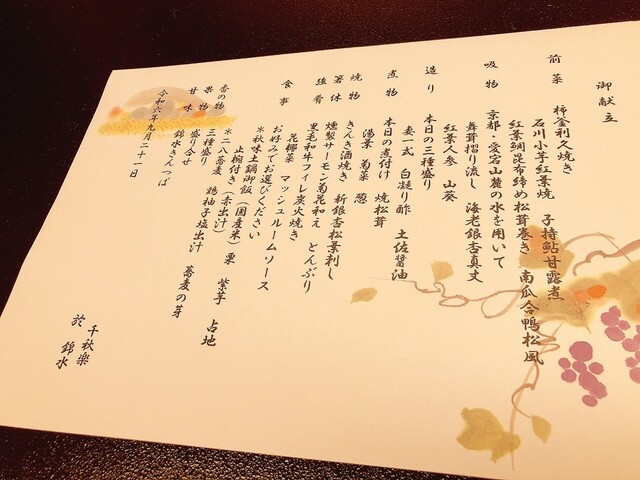 御献立
前菜
柿釜利久焼き
石川小芋紅葉焼 子持鮎甘露煮
紅葉鯛昆布締め松茸巻き 南瓜合鴨松風
吸物
京都・愛宕山麓の水を用いて
舞茸摺り流し 海老銀杏真丈
紅葉人参 山葵
造り
本日の三種盛り
妻一式 白凝り酢 土佐醤油
煮物
本日の煮付け 焼松茸
湯葉 菊菜 葱
焼物
きんき酒焼き 新銀杏松葉刺し
箸休
燻製サーモン菊花和え とんぶり
強肴
黒毛和牛フィレ炭火焼き
花椰菜 マッシュルームソース
食事
お好みでお選びください
*秋味土鍋御飯(国産米) 栗 紫芋 占地
止椀付き(赤出汁)
*二八蕎麦 鶏柚子塩出汁 蕎麦の芽
香の物
三種盛り
果物
盛り合せ
甘味
錦水きんつば
令和六年九月二十一日
千秋楽
於 錦水